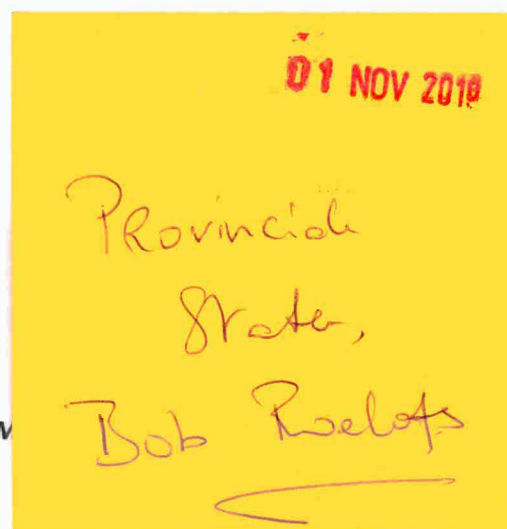 01 NOV 2019
Provinciale
Staten,
Bob Roelofs